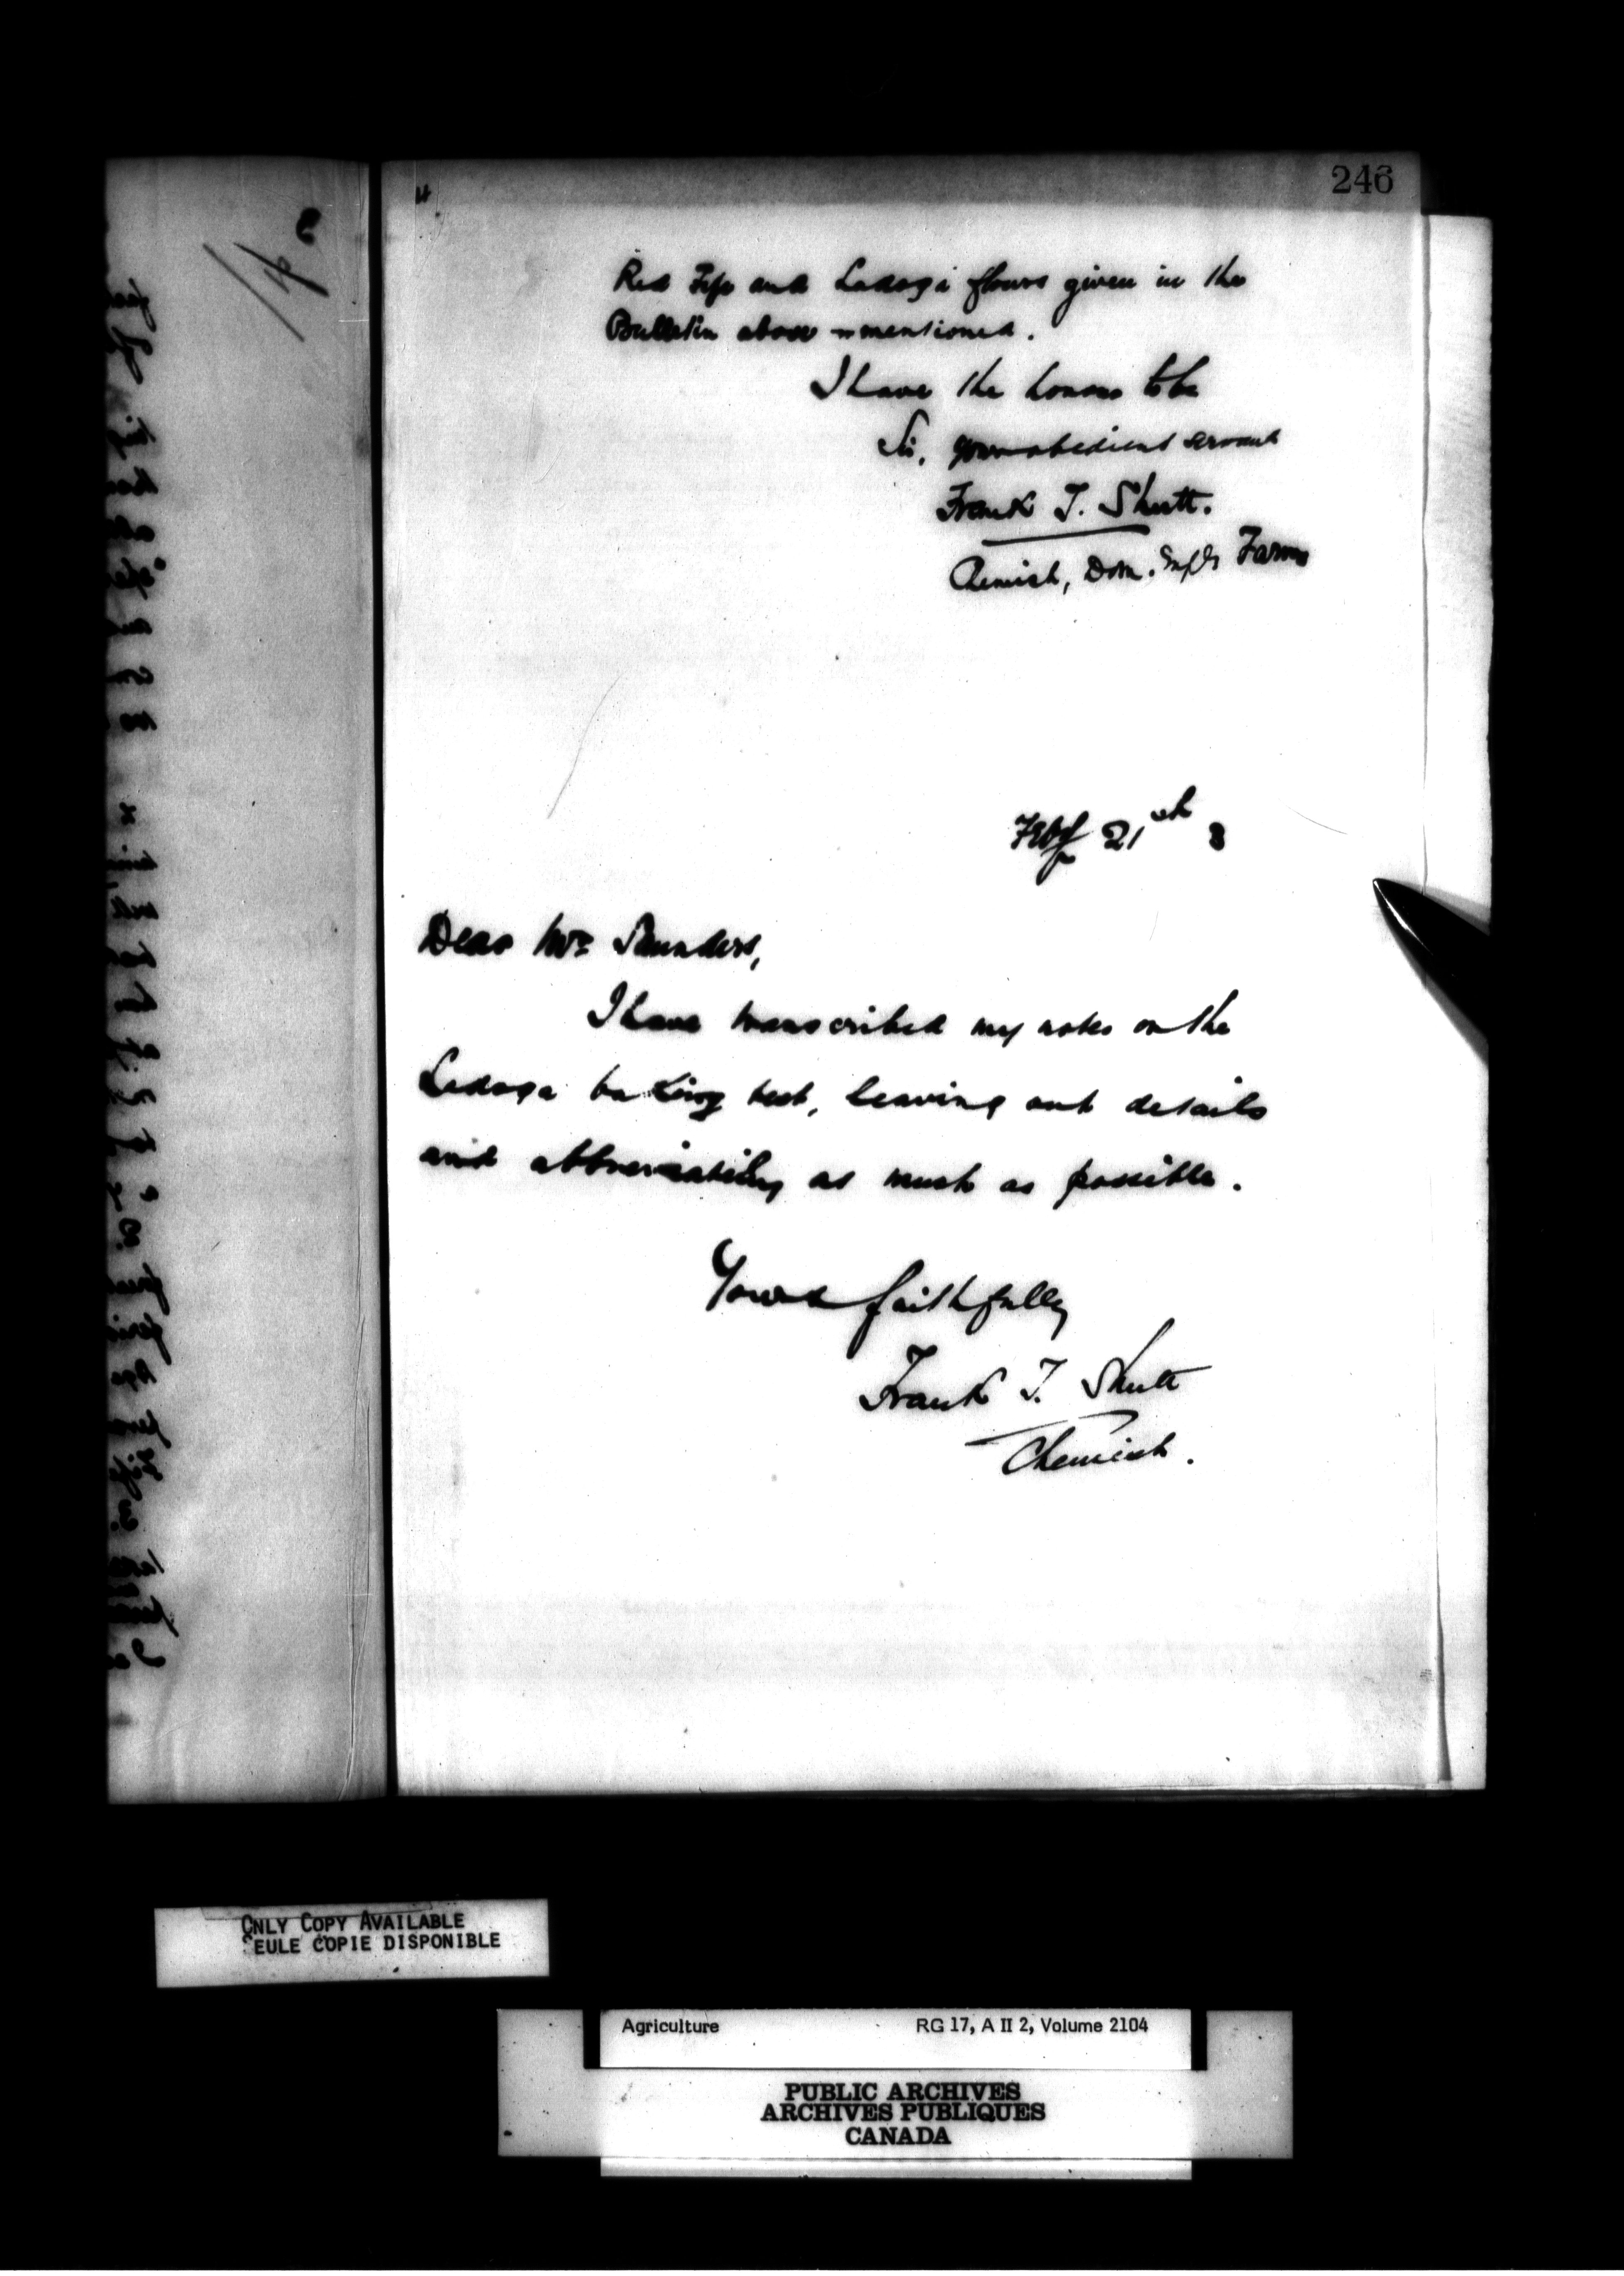 246
Red Fife and Ladoga flours given in the
Bulletin above-mentioned.
I have the honour to be
Sir, your obedient servant
Frank T. Shutt.
Chemist, Dom. Expl Farms
Feby 21st 3
Dear Mr Saunders,
I have transcribed my notes on the
Ladoga baking test, leaving out details
and abbreviating as much as possible.
Yours faithfully
Frank T. Shutt
Chemist.
ONLY COPY AVAILABLE
SEULE COPIE DISPONIBLE
Agriculture RG 17, A II 2, Volume 2104
PUBLIC ARCHIVES
ARCHIVES PUBLIQUES
CANADA